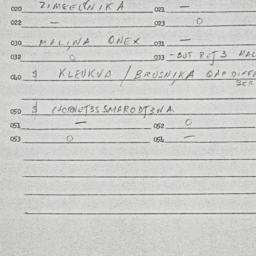 020 ZIMZELINIKA 021 —
022 — 023 O
030 MALINA ONEX 031 —
032 O 033 -BUT PET 3 MAL
040 $ KLEUKVA / BRUSNIKA GAP DIFF
BER
050 $ CHORNU
051 — 052 O
053 O 054 —